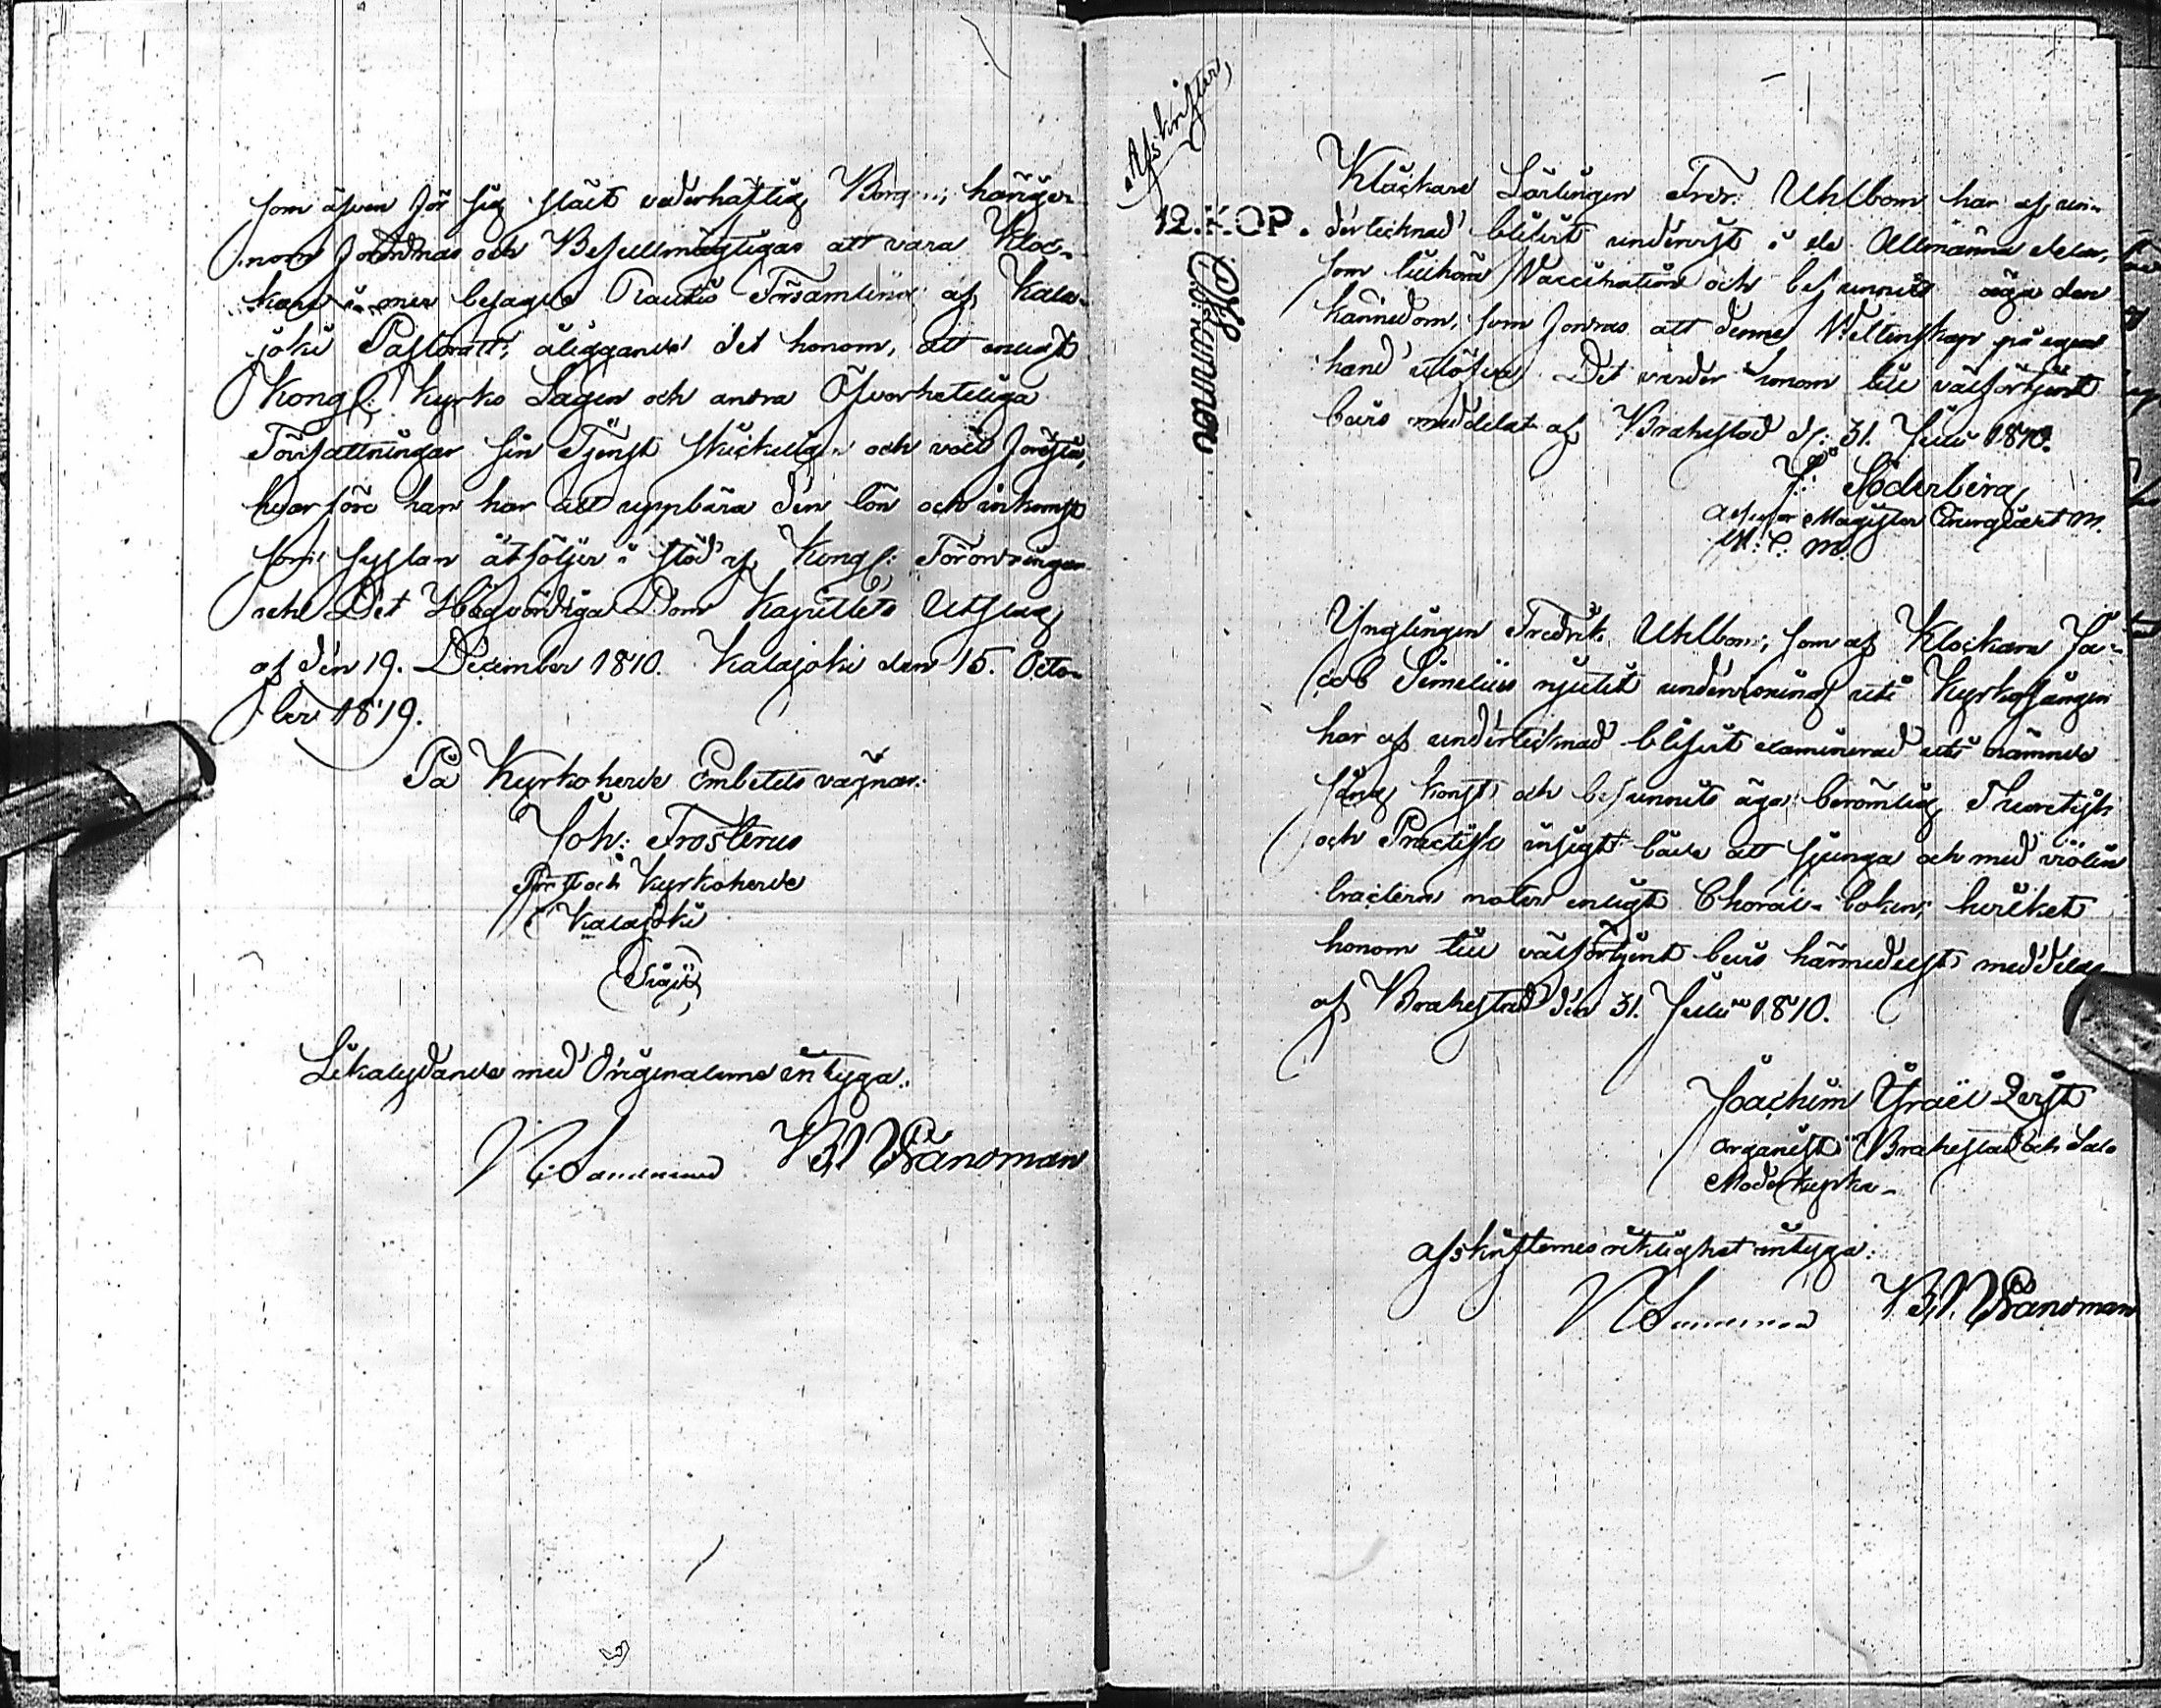 som äfven för sig stält vederhäftig Borgen; härige-
nom förordnas och Befullmägtigas att vara Kloc-
kare i mer besagde Rautio Församling af Kala-
joki Pastorat; åliggande det honom, att enligt
Kongl: Kyrko Lagen och andra Öfverhetliga
Författningar sin Tjenst skickelig och väll förestå,
hvarföre han har att uppbära den lön och inkomst
som sysslan åtföljer i stöd af Kongl: Förordningar
och Det Högvördiga Dom Kapitlets Utslag
af den 19. December 1810. Kalajoki den 15. Octo-
ber 1819.
På Kyrkoherde Embetets vägnar:
Joh: Frosterus
Prost och Kyrkoherde
i Kalajoki
(Sigill)
Likalydande med Originalerne intyga:
Afskrifter
12. KOP.
Klåckare Lärlingen Fredr: Uhlbom har af un-
dertecknad blifvit undervist i de Allmänna delar,
som tillhöra Vaccination och befunnits äga den
kännedom, som fordras att denne Vettenskap på egen
hand utöfva. Det varder honom till välförtjent
bevis meddelat af Brahestad d: 31. Julii 1810.
J: Söderberg
Assessor Magister Chirurgiæ et M.
M: C: M.
Ynglingen Fredrik Uhlbom, som af Klockaren Ja-
cob Simelius njutit undervisning uti Kyrkosången
har af undertecknad blifvit examinerad uti nämnde
sång konst och befunnits äga berömlig Theoretisk
och Practisk insigt både att sjunga och med violin
tractera noter enligt Choral-boken; hvilket
honom till välförtjent bevis härmedelst meddelas
af Brahestad den 31. Julii 1810.
Joachim Israël
Organist i Brahestad och Salo
Moderkyrka-
Afskrifternes riktighet intyga: